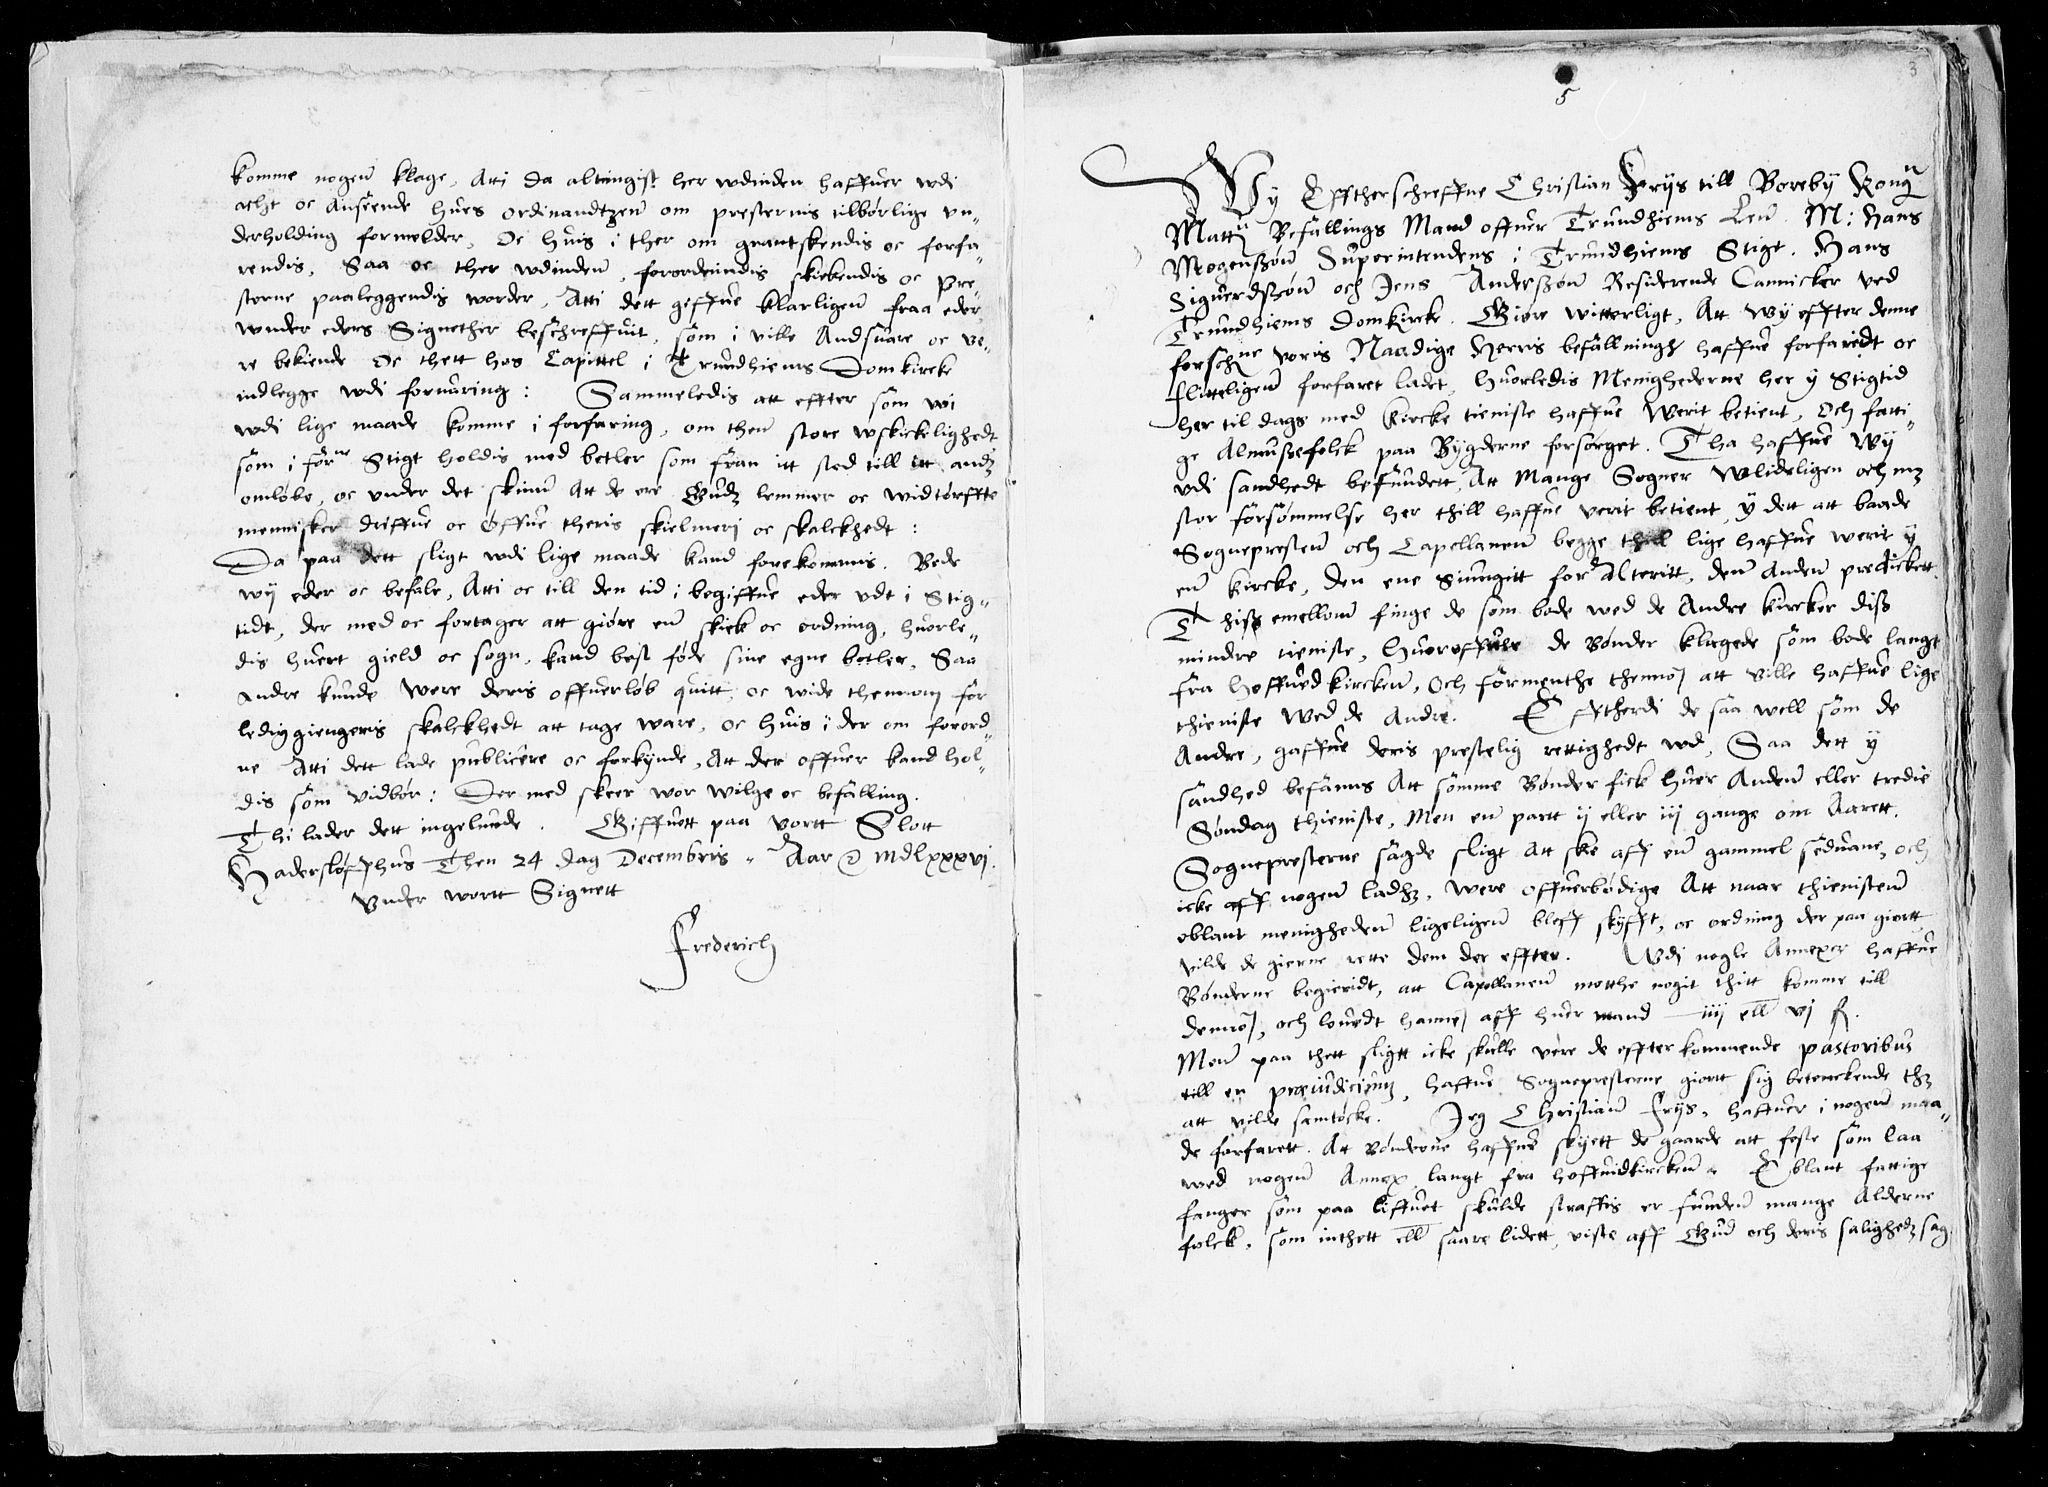 komme nogen klage, Atti da altingist her wdinden haffuer wdi
acht oc Anseende hues ordinandtzen om presternis tilbørlige vn„
derholding formelder, Oc huis i ther om grantskendis oc forfa
rendis, Saa oc ther wdinden, forordenndis skickendis oc pre„
sterne paaleggendis worder, Atti dett giffue klarligen fraa eder
wnder eders Signether beschreffuit, som i ville Andsuare oc ve„
re bekiende Oc thett hos Capittel i Trundhiems Domkircke
indlegge wdi foruaring: Sammeledis att effter som wi
wdi lige maade komme i forfaring, om then store wskickelighedt
som i forne Stigt holdis med betler som fran itt sted till itt andz
omløbe, oc vnder det skinn Att de ere Gudz lemmer oc widtørffte
mennisker driffue oc øffue theris skielmerj oc skalckhedt:
Da paa dett sligt wdi lige maade kand forekommis. Bede
wij eder oc befale, Atti oc till den tid i begiffue eder vdt i Stig„
tidt, der med oc fortager att giøre en skick oc ordning, huorle„
dis huert gield oc sogn, kand best føde sine egne betler, Saa
Andre kunde were deris offuerløb quitt, oc wide thennom for
lediggiengeris skalckhedt att tage ware, oc huis i der om forord„
ne Atti dett lade publicere oc forkynde, Att der offuer kand hol„
dis som vidbør: Der med skeer wor wilge oc befalling.
Thi lader dett ingelunde. Giffuett paa vortt Slott
Haderslöffhus Then 24 dag Decembris „ Aar &c mdlxxxvj.
Vnder wortt Signett
Frederich
3
5
Wy Efftherschreffne Christian Frijs till Boreby Kong
Matts Befallings Mand offuer Trundhiems Len M: Hans
Mogenszøn Superintendens i Trundhiems Stigt. Hans
Siguerdszøn och Jens Anderszøn Residerende Cannicker ved
Trundhiems domkircke. Giøre witterligt, Att Wy effter denne
forschne voris Naadige Herris befallningh haffue forfaridt oc
flitteligen forfaret ladet, huorledis Menighederne her y Stigtid
her til dags med Kircke tieniste haffue Werit betient, Och fatti„
ge Almuszefolck paa Bygderne forsorget. Tha haffue Wy
vdi sandhedt befundett, Att Mange Sogner Wlideligen och mz
stor forsømmelse her thill haffue verit betient, y dett att baade
Sognepresten och Capellanen begge thill lige haffue werit y
en kircke, den ene siungitt for Alteritt, den Anden predickett.
Thisz emellom finge de som bode wed de Andre kircker disz
mindre tieniste, huoroffuer de Bønder klagede som bode langt
fra hoffuedkircken, Och formenthe thennom att ville haffue lige
thieniste Wed de Andre. Efftherdi de saa well som de
Andre, gaffue deris prestelig rettighedt wd, Saa dett y
sandhed befanns Att somme Bønder fick huer Anden eller tredie
Søndag thieniste, Men en partt ij eller iij gange om Aarett.
Sognepresterne sagde sligt Att ske aff en gammel seduane, och
icke aff nogen ladhz, were offuerbødige Att naar thienisten
eblant menigheden ligeligen bleff skyfft, oc ordning der paa giortt
vilde de gierne rette dem der effter. Wdi nogle Annexer haffue
Bønderne begieridt, att Capellanen motthe nogit thitt komme till
dennom, och louedt hannem aff huer mand iiij ell vj ß.
Men paa thett sligtt icke skulle vere de effterkommende pastoribus
till en præiudicium, haffue Sognepresterne giortt sig betenckende thz
att vilde samtøcke. Jeg Christian Frijs, haffuer i nogen maa„
de forfarett. Att Bønderne haffue skyett de gaarde att feste som laa
wed nogen Annex langt fra hoffuidkircken. Eblant fattige
fanger som paa liffuet skulde straffis er funden mange Alderne
folck, som inthett ell saare lidett, viste aff Gud och deris salighedz sag